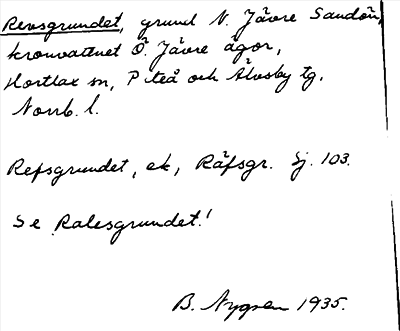 Revsgrundet, grund N. Jävre Sandön,
kronvattnet Ö. Jävre ägor,
Hortlax sn, Piteå och Älvsby tg.
Norrb. l.
Refsgrundet, ek, Räfsgr. Sj. 103.
Se Ralesgrundet!
B. Nygren 1935.